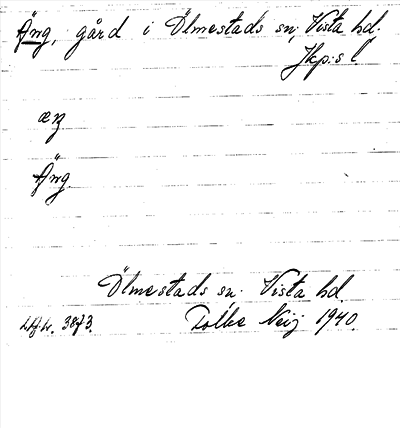 Äng, gård i Ölmestads sn, Vista hd.
Jkp:s l
æŋ
Äng
Ölmestads sn. Vista hd.
3873. Tolbe Neij 1940.